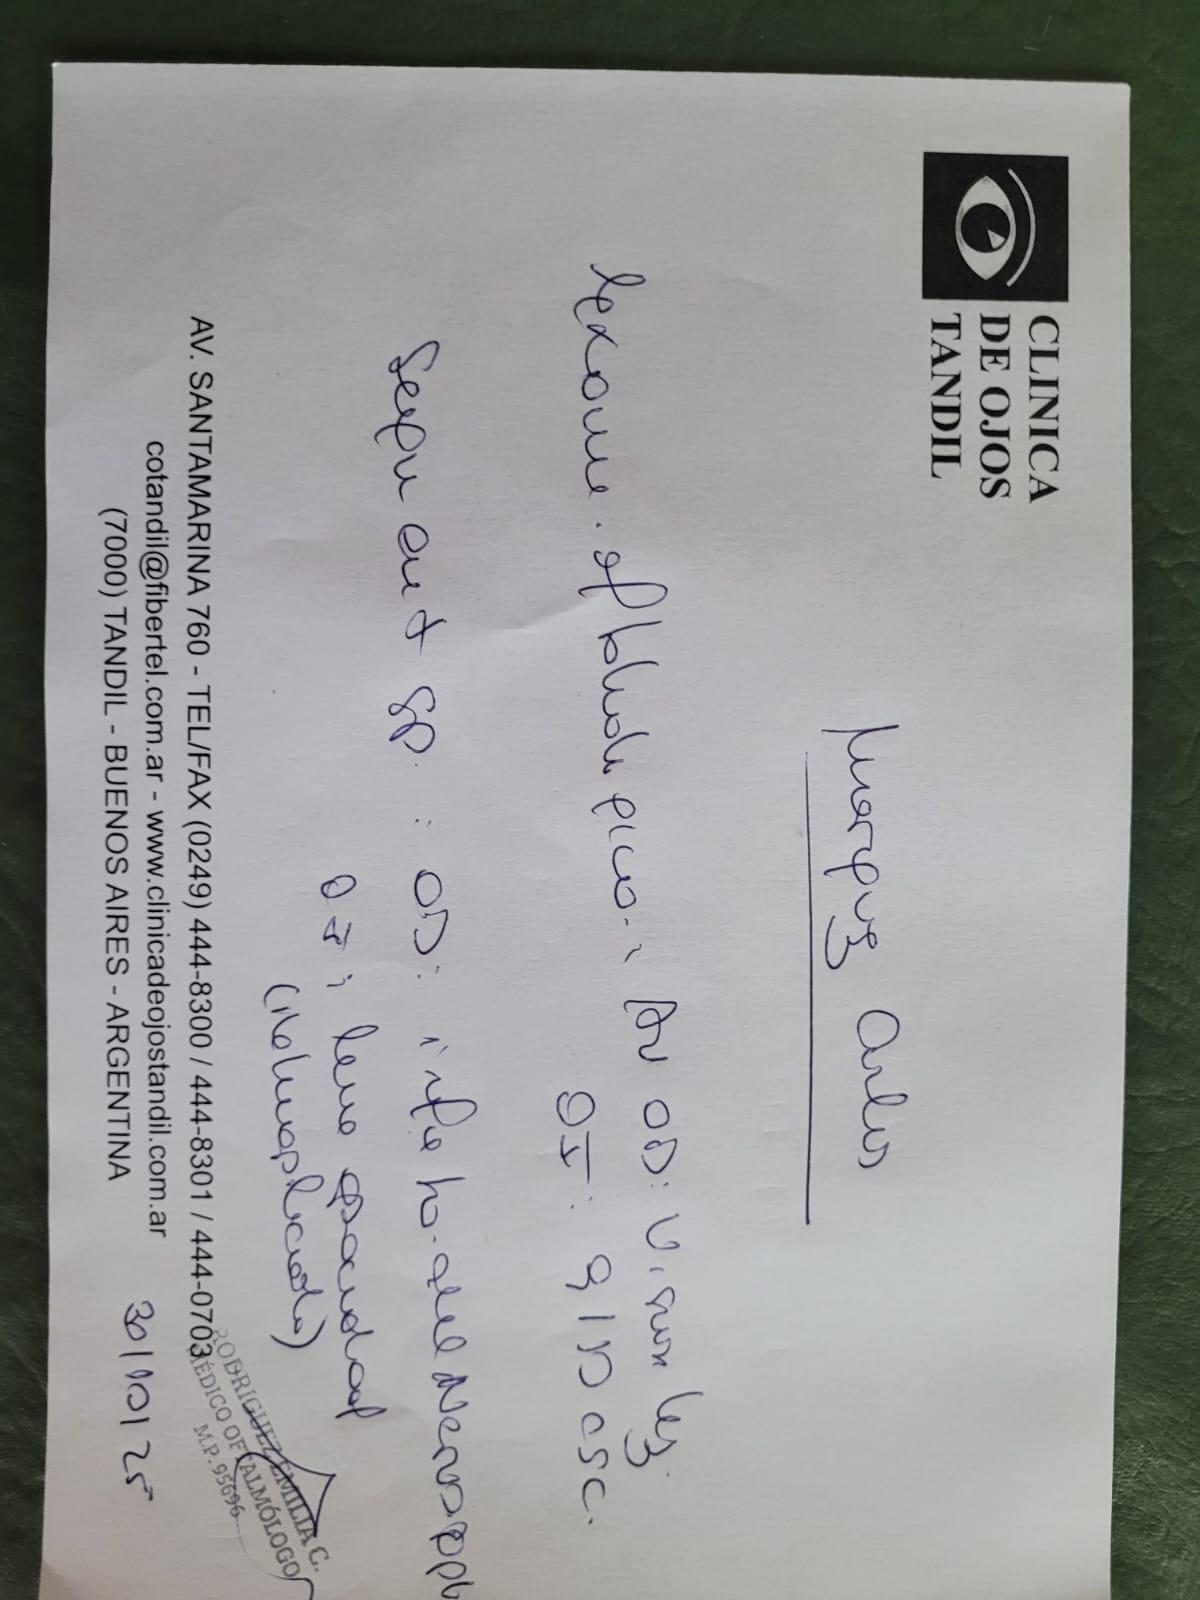 CLINICA
DE OJOS
TANDIL
Marquez Carlos
Examen oftalmológico: AV OD: Vision luz.
OI: 9/10 csc.
Segm ant y : OD: del Nervio opt
OI: leve
AV. SANTAMARINA 760 - TEL/FAX (0249) 444-8300 / 444-8301 / 444-0703
cotandil@fibertel.com.ar - www.clinicadeojostandil.com.ar
(7000) TANDIL - BUENOS AIRES - ARGENTINA
30/10/25
RODRIGUEZ EMILIA C.
MÉDICO OFTALMÓLOGO
M.P. 95696